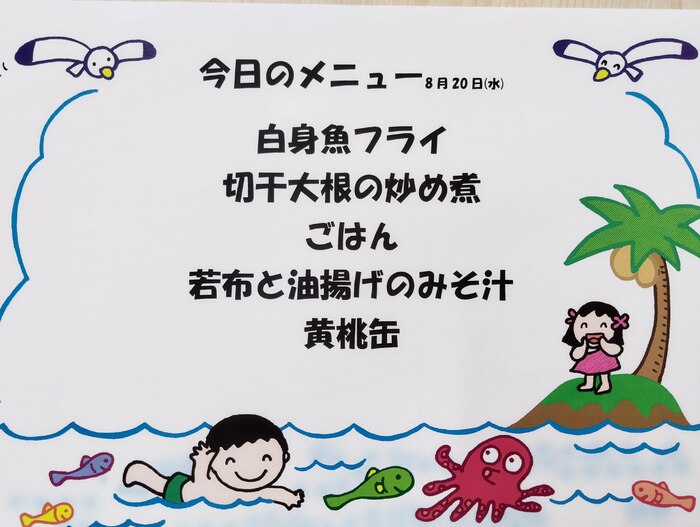 今日のメニュー8月20日(水)
白身魚フライ
切干大根の炒め煮
ごはん
若布と油揚げのみそ汁
黄桃缶